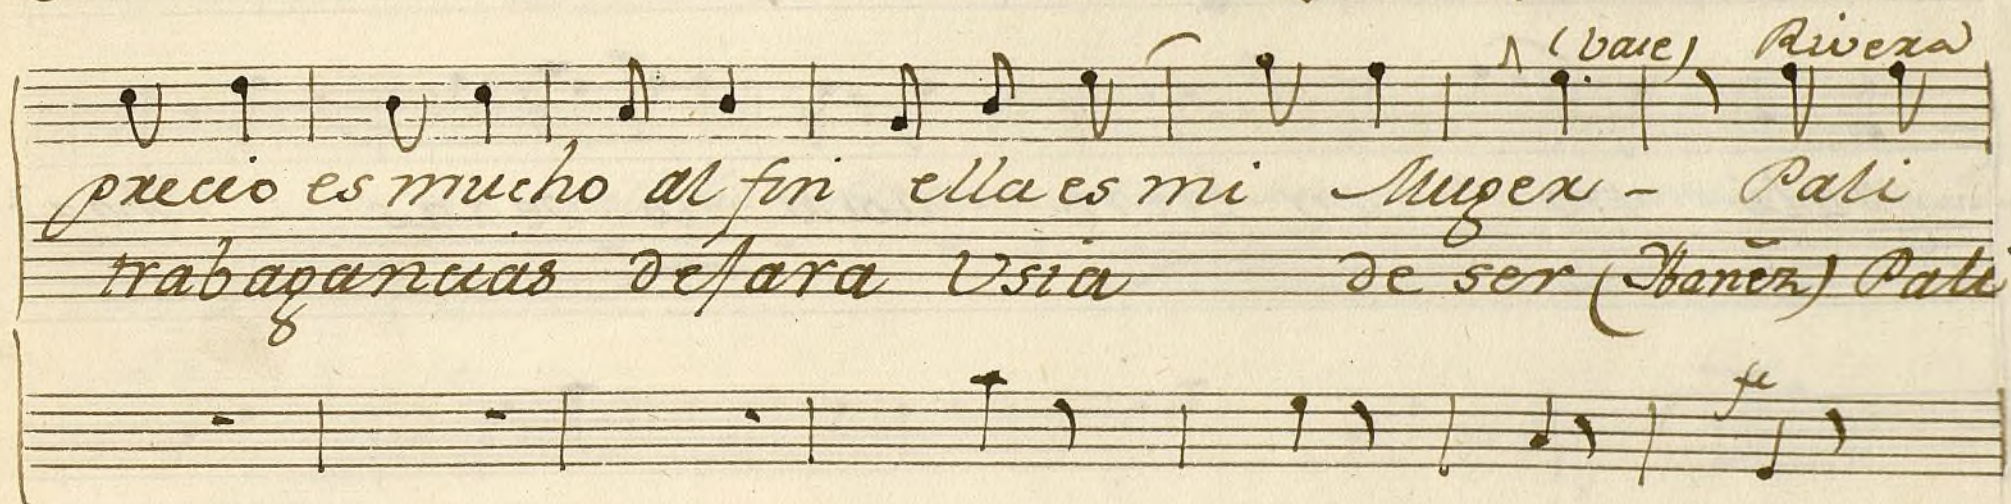 (vase) Rivera
precio es mucho al fin ella es mi Muger - Pati
trabagancias dejara Usia de ser (Ibañez) Pati
fe